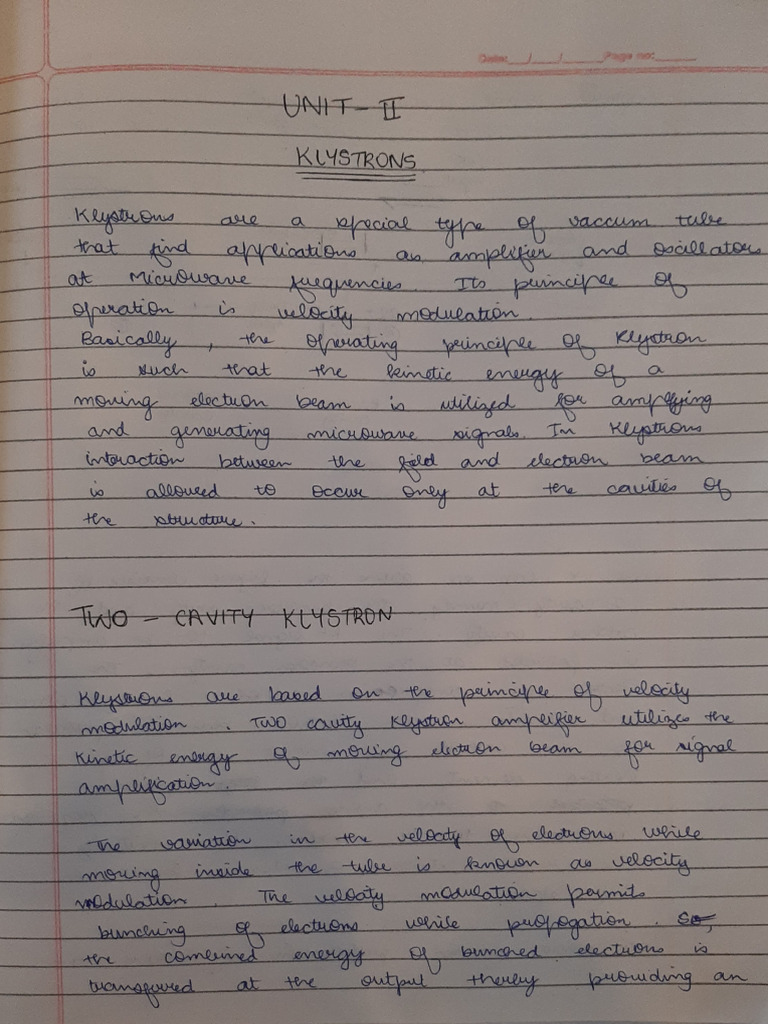 Date: __/__/__ Page no: ____
UNIT-II
KLYSTRONS
Klystrons are a special type of vaccum tube
that find applications as amplifier and oscillators
at Microwave frequencies. Its principle of
operation is velocity modulation.
Basically, the operating principle of Klystron
is such that the kinetic energy of a
moving electron beam is utilized for amplifying
and generating microwave signals. In Klystrons
interaction between the field and electron beam
is allowed to occur only at the cavities of
the structure.
TWO - CAVITY KLYSTRON
Klystrons are based on the principle of velocity
modulation. TWO cavity Klystron amplifier utilizes the
Kinetic energy of moving electron beam for signal
amplification.
The variation in the velocity of electrons while
moving inside the tube is known as velocity
modulation. The velocity modulation permits
bunching of electrons while propogation. So,
the combined energy of bunched electrons is
transferred at the output thereby providing an